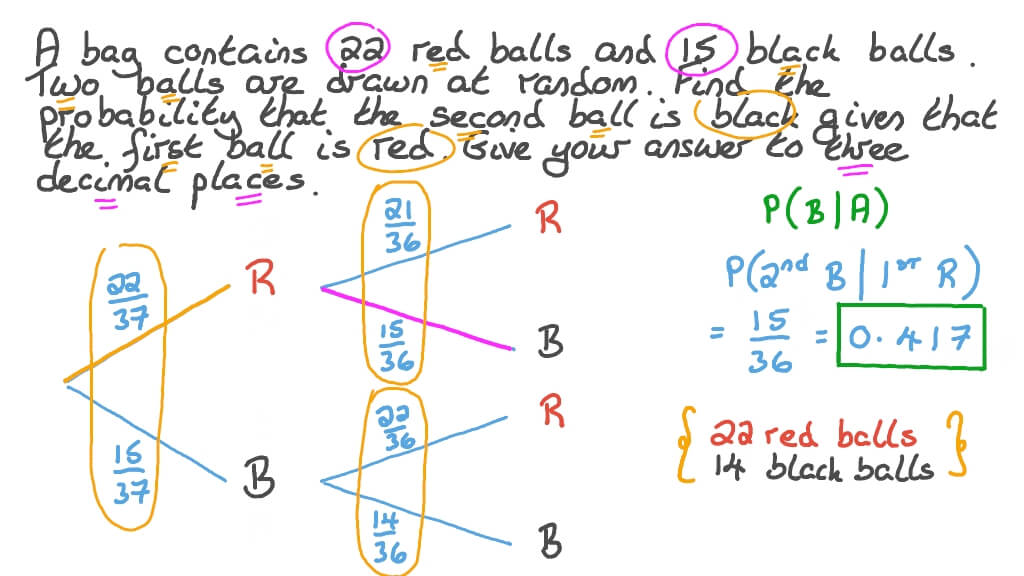 A bag contains 22 red balls and 15 black balls.
Two balls are drawn at random. Find the
probability that the second ball is black given that
the first ball is red. Give your answer to three
decimal places.
P(B|A)
P(2nd B | 1st R)
= 15/36 = 0.417
22 red balls
14 black balls
22/37
R
15/37
B
21/36
R
15/36
B
22/36
R
14/36
B